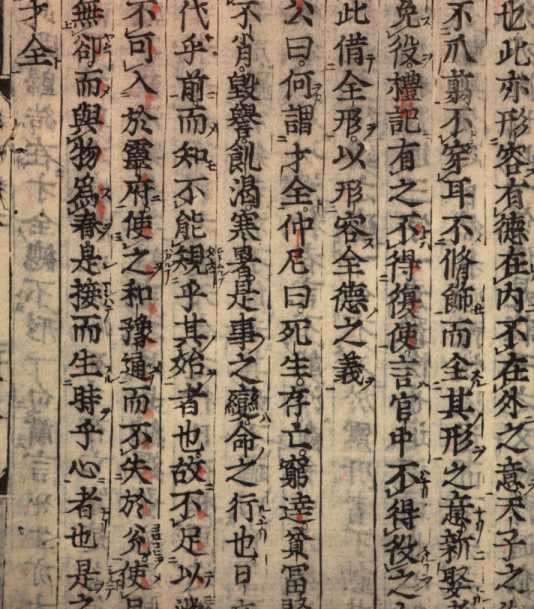 也此亦形容有德在内不在外之意天子之
不爪翦不穿耳不脩飾而全其形之意新娶
免役禮記有之不得復使言官中不得役之
此借全形以形容全德之義
公曰何謂才全仲尼曰死生存亡窮達貧冨
不肖毀譽飢渴寒暑是事之變命之行也日
代乎前而知不能規乎其始者也故不足以
不可入於靈府使之和豫通而不失於兊使日
無卻而與物為春是接而生時乎心者也是之
才全